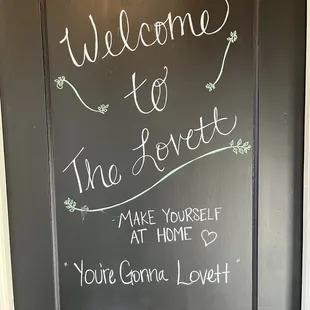 Welcome
to
The Lovett
-MAKE YOURSELF
AT HOME ♡
"You're Gonna Lovett"